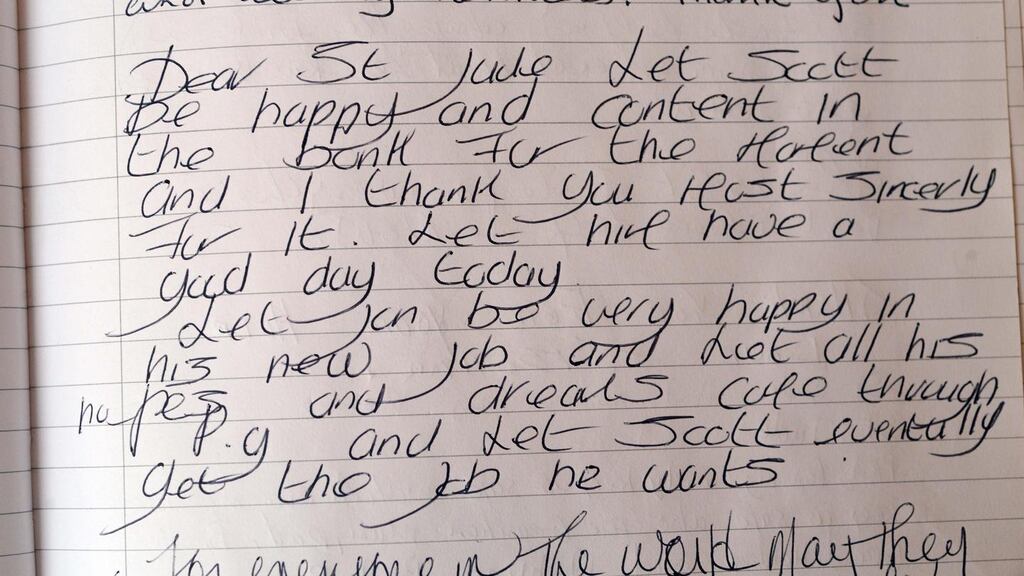 Thank you
Dear St Jude Let Scott
be happy and content in
the bank for the moment
and I thank you most sincerly
for it. Let him have a
good day today
Let Jon be very happy in
his new job and Let all his
hopes and dreams come through
P.g and Let Scott eventually
get the job he wants
For everyone in the world May they